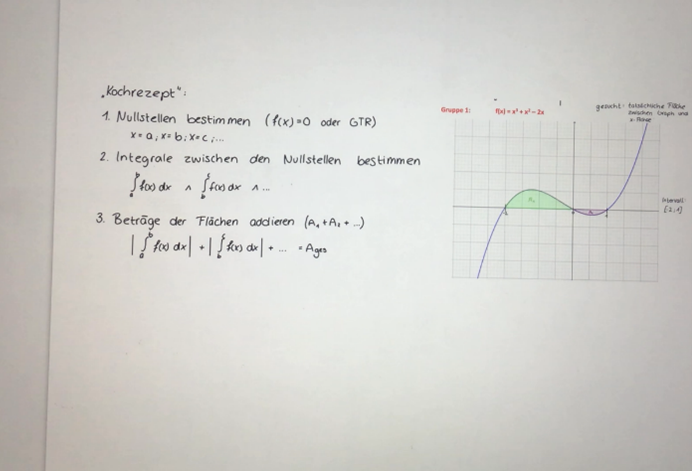 „Kochrezept":
1. Nullstellen bestimmen (f(x)=0 oder GTR)
x=a; x=b; x=c;...
2. Integrale zwischen den Nullstellen bestimmen
∫ₐᵇ f(x) dx ∧ ∫ᵦᶜ f(x) dx ∧ ...
3. Beträge der Flächen addieren (A₁+A₂+...)
|∫ₐᵇ f(x) dx| + |∫ᵦᶜ f(x) dx| + ... = Ages
Gruppe 1: f(x) = x³ + x² – 2x
gesucht: tatsächliche Fläche
zwischen Graph und
x-Achse
Intervall